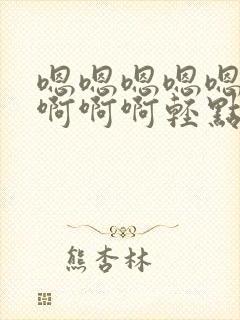 嗯嗯嗯嗯嗯
啊啊啊輕點
熊杏林